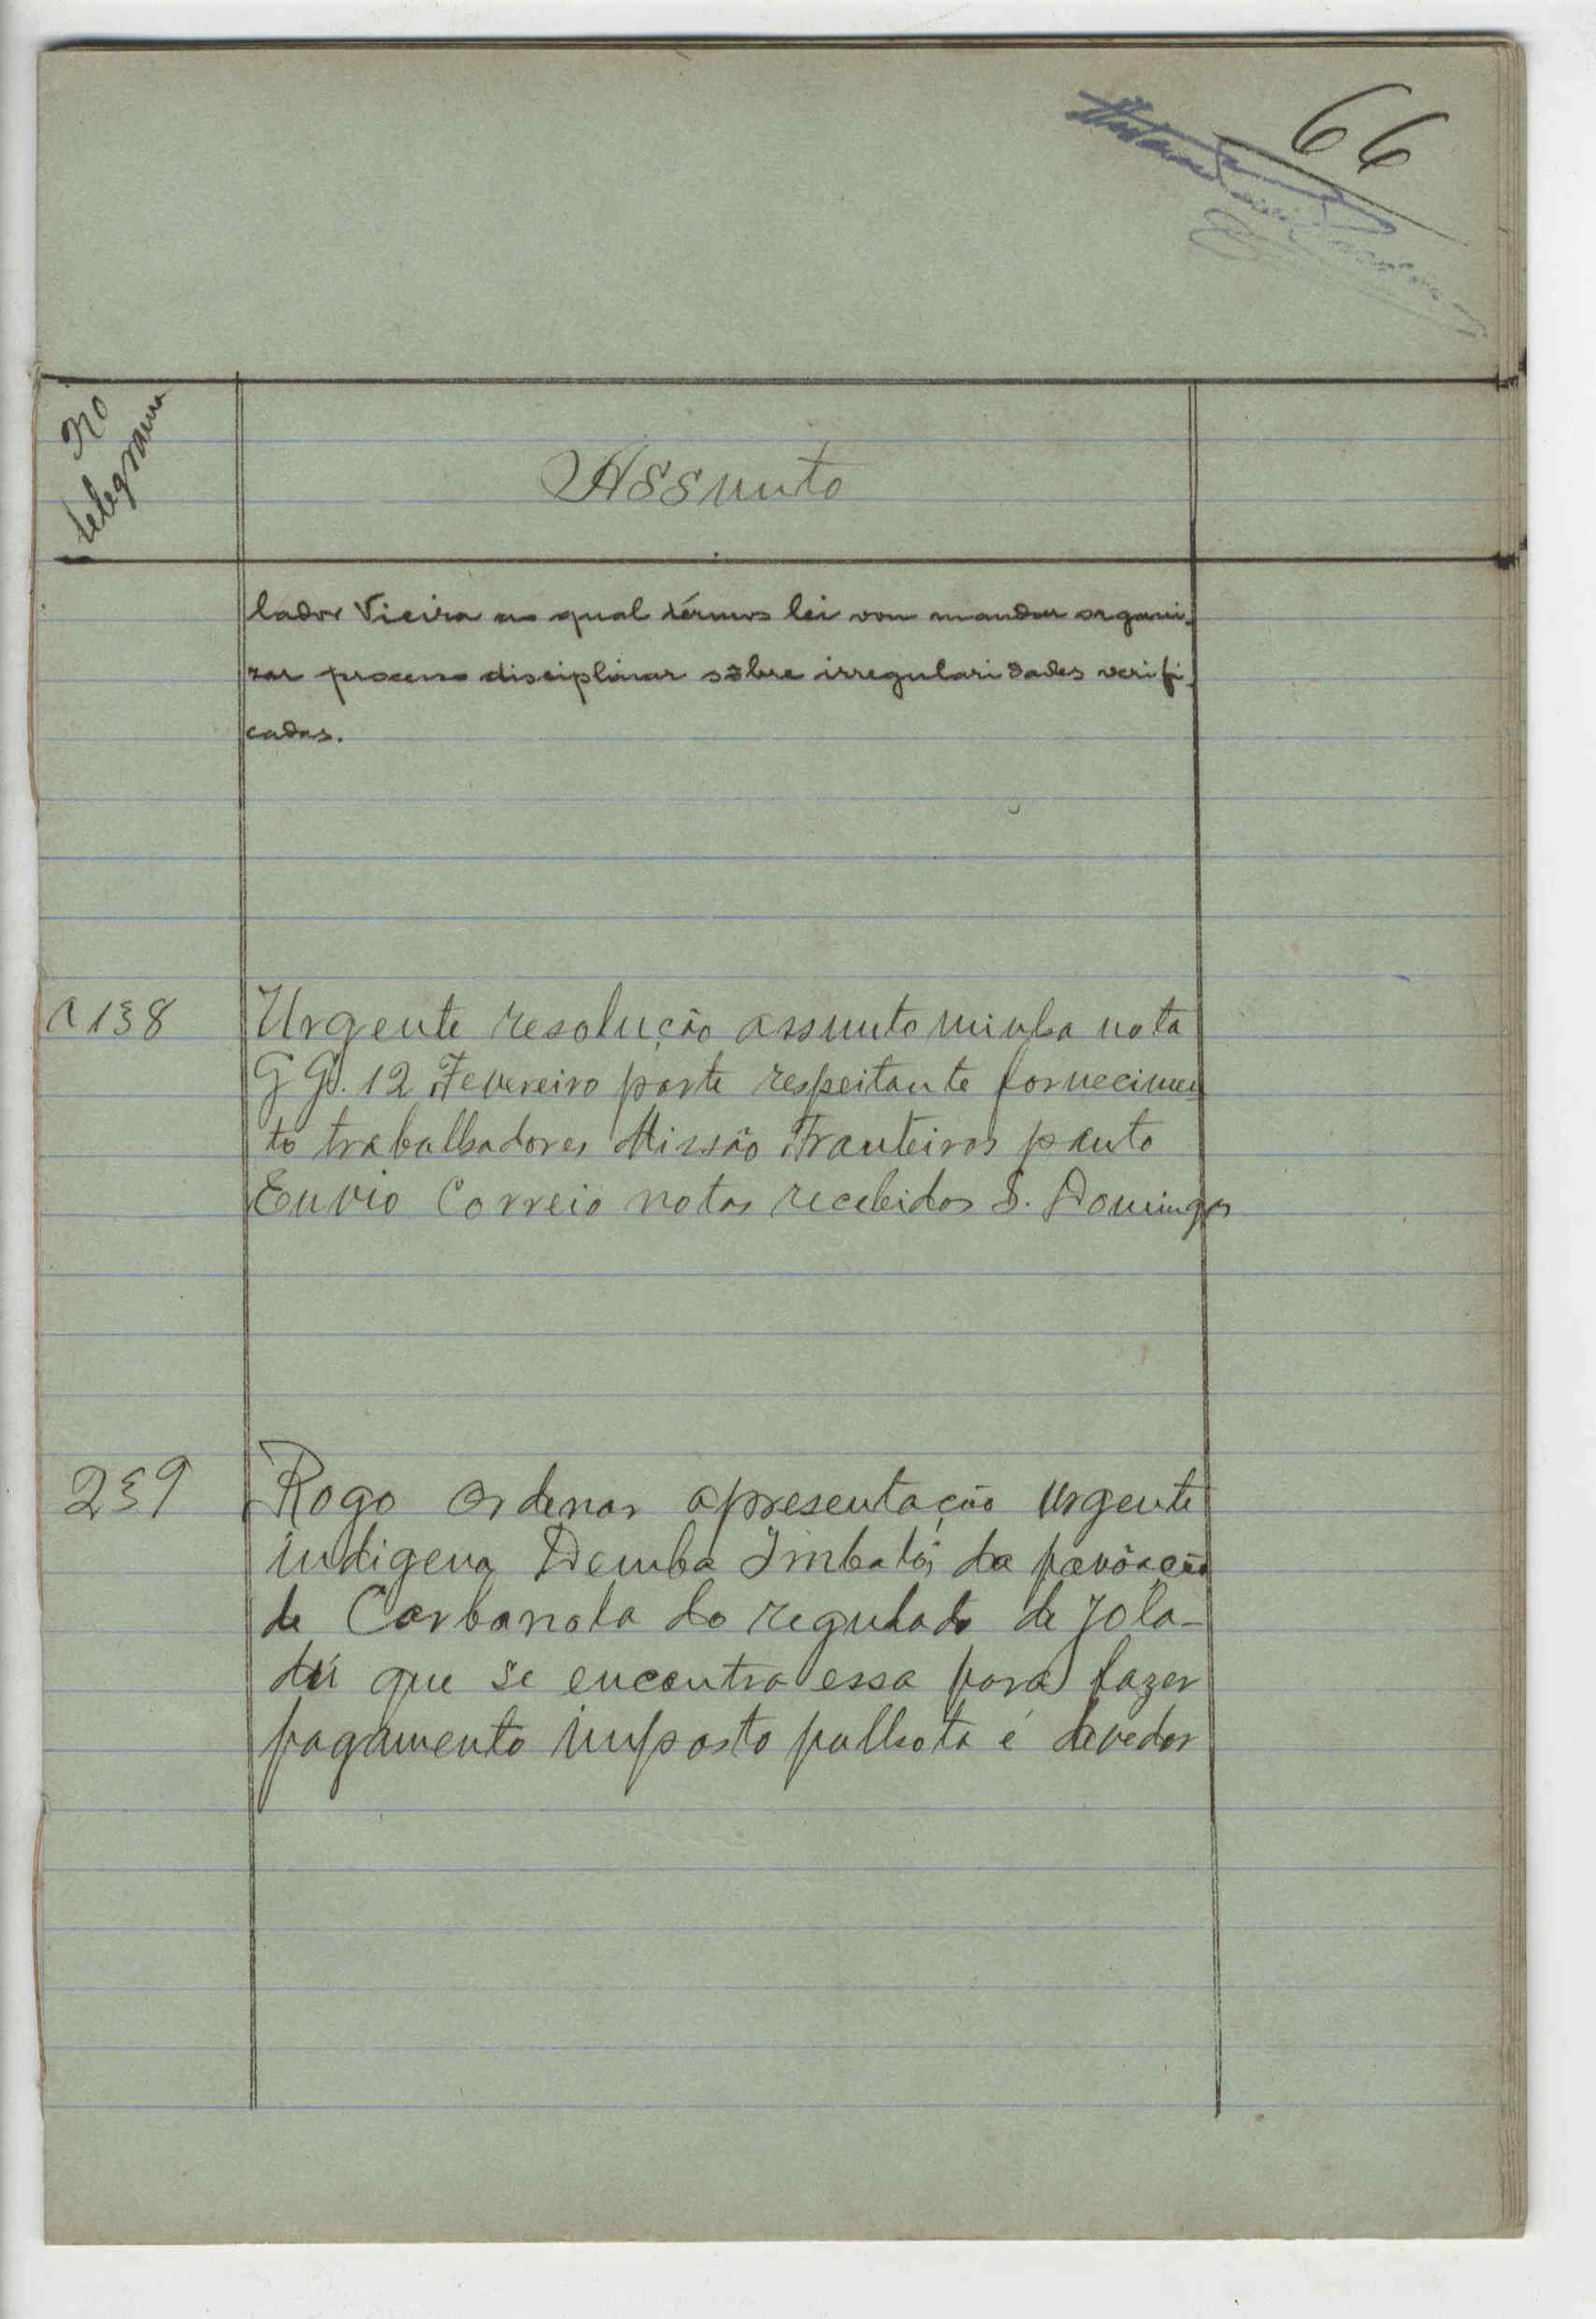 66
No
telegrama
Assunto
lador Vieira ao qual térmos lei vou mandar organi-
zar processo disciplinar sôbre irregularidades verifi-
cadas.
138
Urgente resolução assunto minha nota
G G. 12 Fevereiro parte respeitante fornecimen
to trabalhadores Missão Fronteiras ponto
Envio Correio notas recebidas S. Domingos
239
Rogo ordenar apresentação urgente
indigena Demba Imbaló da povôação
de Carbanola do regulado de Jola-
dú que se encontra essa para fazer
pagamento imposto palhota é devedor